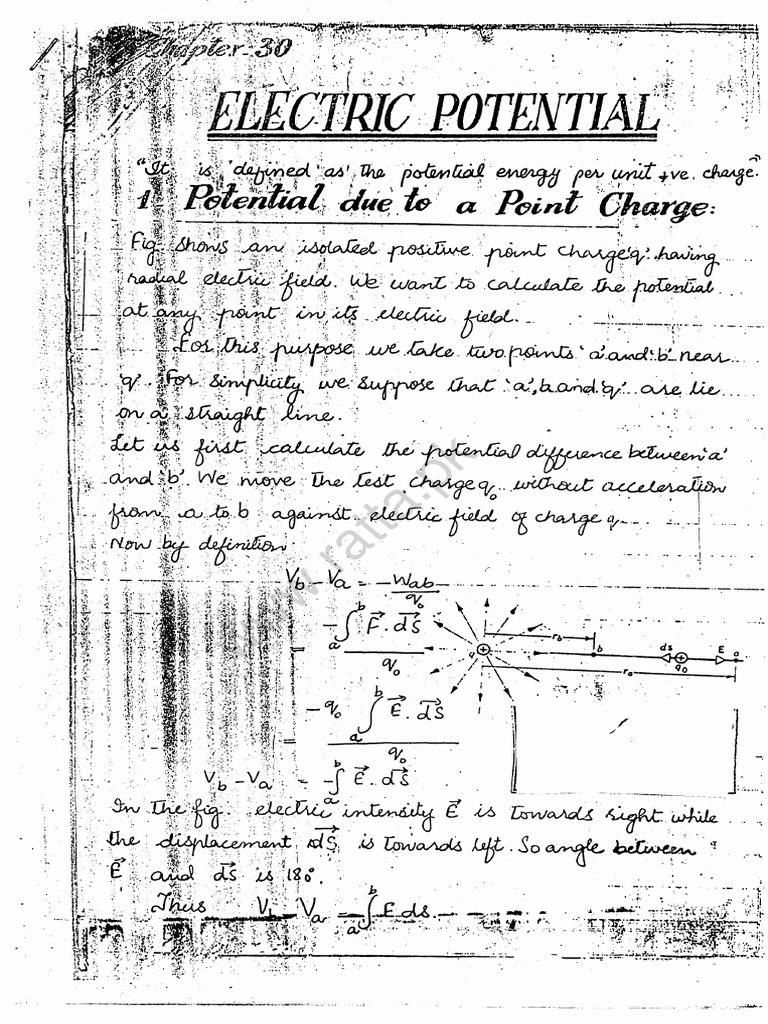 Chapter-30
ELECTRIC POTENTIAL
"It is 'defined' as' the potential energy per unit +ve. charge."
1- Potential due to a Point Charge:
Fig shows an isolated positive point charge 'q' having
radial electric field. We want to calculate the potential
at any point in its electric field.
For this purpose we take two points 'a' and 'b' near
'q'. For simplicity we suppose that 'a', b and 'q' are lie
on a straight line.
Let us first calculate the potential difference between 'a'
and 'b'. We move the test charge q₀ without acceleration
from a to b against electric field of charge q.
Now by definition
V_b - V_a = -W_ab / q₀
= -∫_a^b F⃗ . dS⃗ / q₀
= -q₀ ∫_a^b E⃗ . dS⃗ / q₀
V_b - V_a = -∫_a^b E⃗ . dS⃗
r_b
q b ds q₀ E a
r_a
In the fig. electric intensity E⃗ is towards right while
the displacement dS⃗ is towards left. So angle between
E⃗ and dS⃗ is 180°.
Thus V_b - V_a = -∫_a^b E ds
www.ratta.pk